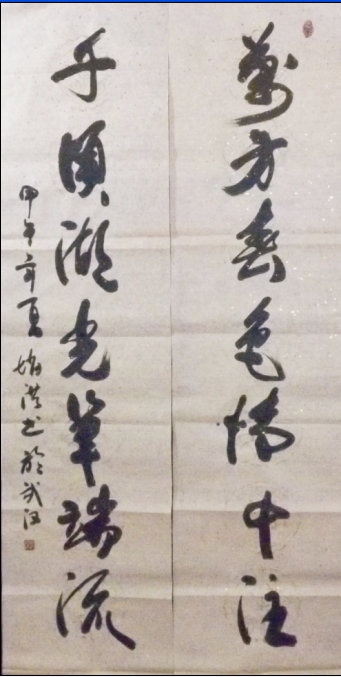 萬方春色情中注
千頃湖光筆端流
甲午夏洪书於武汉